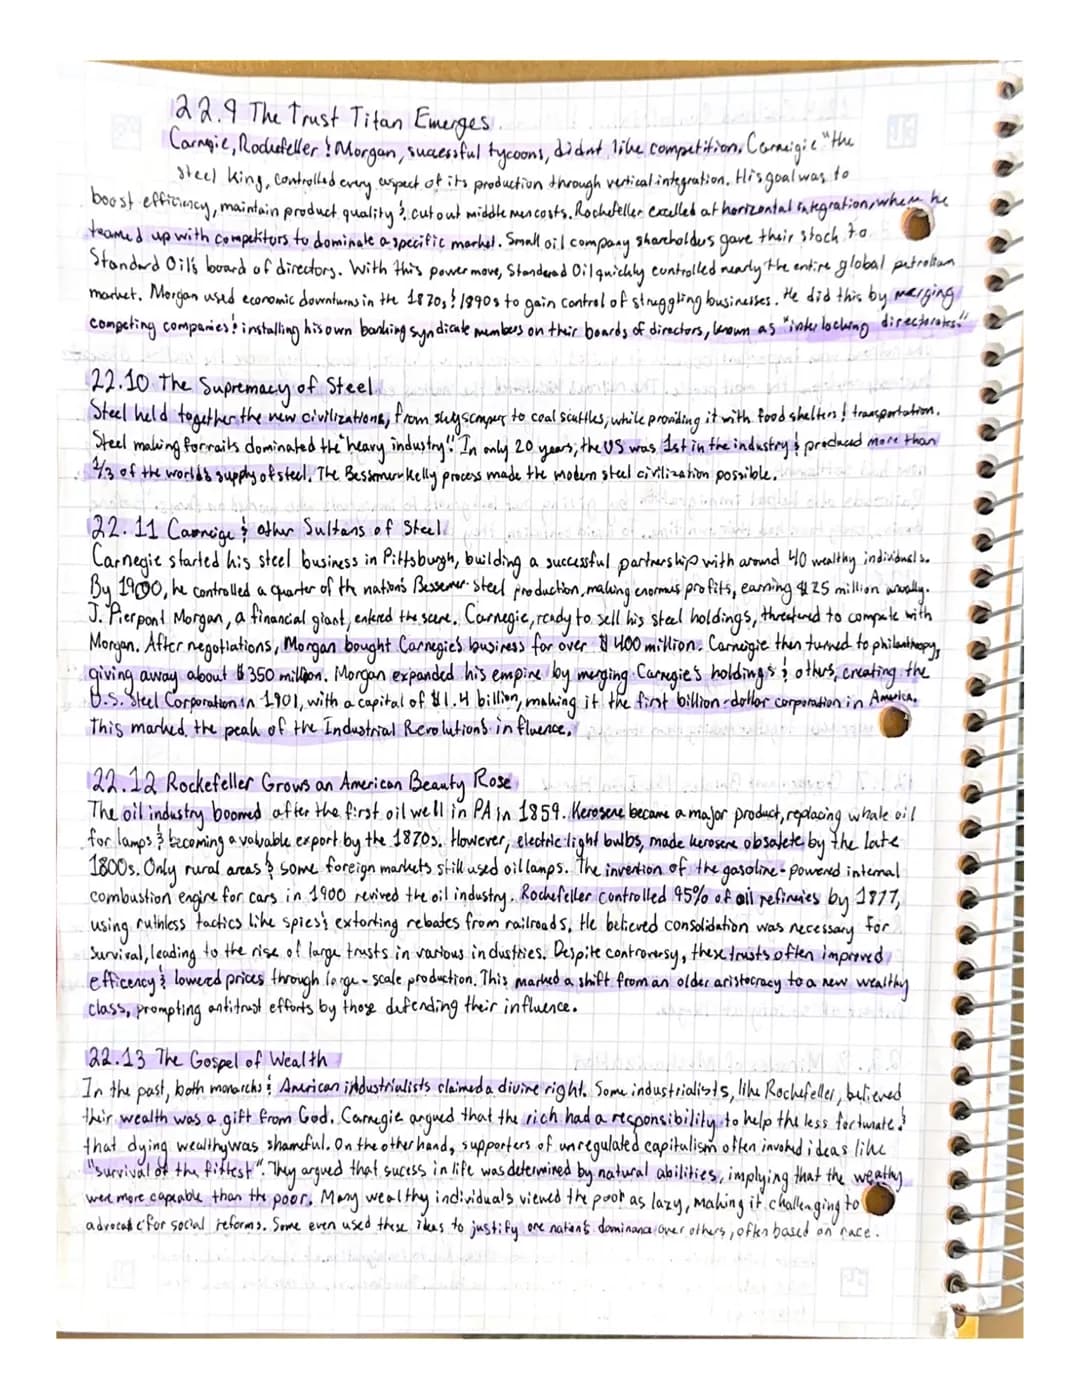 22.9 The Trust Titan Emerges
Carnegie, Rockefeller & Morgan, successful tycoons, didnt like competition. Carneigie "the
steel king, controlled every aspect of its production through vertical integration. His goal was to
boost efficiency, maintain product quality & cut out middle men costs. Rockefeller excelled at horizontal integration, where he
teamed up with competitors to dominate a specific market. Small oil company shareholders gave their stock to
Standard Oil's board of directors. With this power move, Standerd Oil quickly controlled nearly the entire global petroleum
market. Morgan used economic downturns in the 1870s & 1890s to gain control of struggling businesses. He did this by merging
competing companies & installing his own banking syndicate members on their boards of directors, known as "interlocking directorates."
22.10 The Supremacy of Steel
Steel held together the new civilizations, from skyscraper to coal scuttles, while providing it with food shelters & transportation.
Steel making for rails dominated the "heavy industry". In only 20 years, the US was 1st in the industry & produced more than
1/3 of the world's supply of steel. The Bessemer Kelly process made the modern steel civilization possible.
22.11 Carneige & other Sultans of Steel
Carnegie started his steel business in Pittsburgh, building a successful partnership with around 40 wealthy individuals.
By 1900, he controlled a quarter of the nation's Bessemer steel production, making enormus profits, earning $25 million anually.
J. Pierpont Morgan, a financial giant, entered the scene. Carnegie, ready to sell his steel holdings, threatened to compete with
Morgan. After negotiations, Morgan bought Carnegie's business for over $400 million. Carneigie then turned to philanthropy,
giving away about $350 million. Morgan expanded his empire by merging Carnegie's holdings & others, creating the
U.S. Steel Corporation in 1901, with a capital of $1.4 billion, making it the first billion-dollar corporation in America.
This marked the peak of the Industrial Revolution's influence.
22.12 Rockefeller Grows an American Beauty Rose
The oil industry boomed after the first oil well in PA in 1859. Kerosene became a major product, replacing whale oil
for lamps & becoming a valuable export by the 1870s. However, electric light bulbs, made kerosene obsolete by the late
1800s. Only rural areas & some foreign markets still used oil lamps. The invention of the gasoline-powered internal
combustion engine for cars in 1900 revived the oil industry. Rockefeller controlled 95% of oil refineries by 1877,
using ruthless tactics like spies & extorting rebates from railroads. He believed consolidation was necessary for
survival, leading to the rise of large trusts in various industries. Despite controversy, these trusts often improved
efficency & lowered prices through large-scale production. This marked a shift from an older aristocracy to a new wealthy
class, prompting antitrust efforts by those defending their influence.
22.13 The Gospel of Wealth
In the past, both monarchs & American industrialists claimed a divine right. Some industrialists, like Rockefeller, believed
their wealth was a gift from God. Carnegie argued that the rich had a responsibility to help the less fortunate &
that dying wealthy was shameful. On the other hand, supporters of unregulated capitalism often invoked ideas like
"survival of the fittest". They argued that sucess in life was determined by natural abilities, implying that the
were more capable than the poor. Many wealthy individuals viewed the poor as lazy, making it challenging to
advocate for social reforms. Some even used these ideas to justify one nation's dominance over others, often based on race.